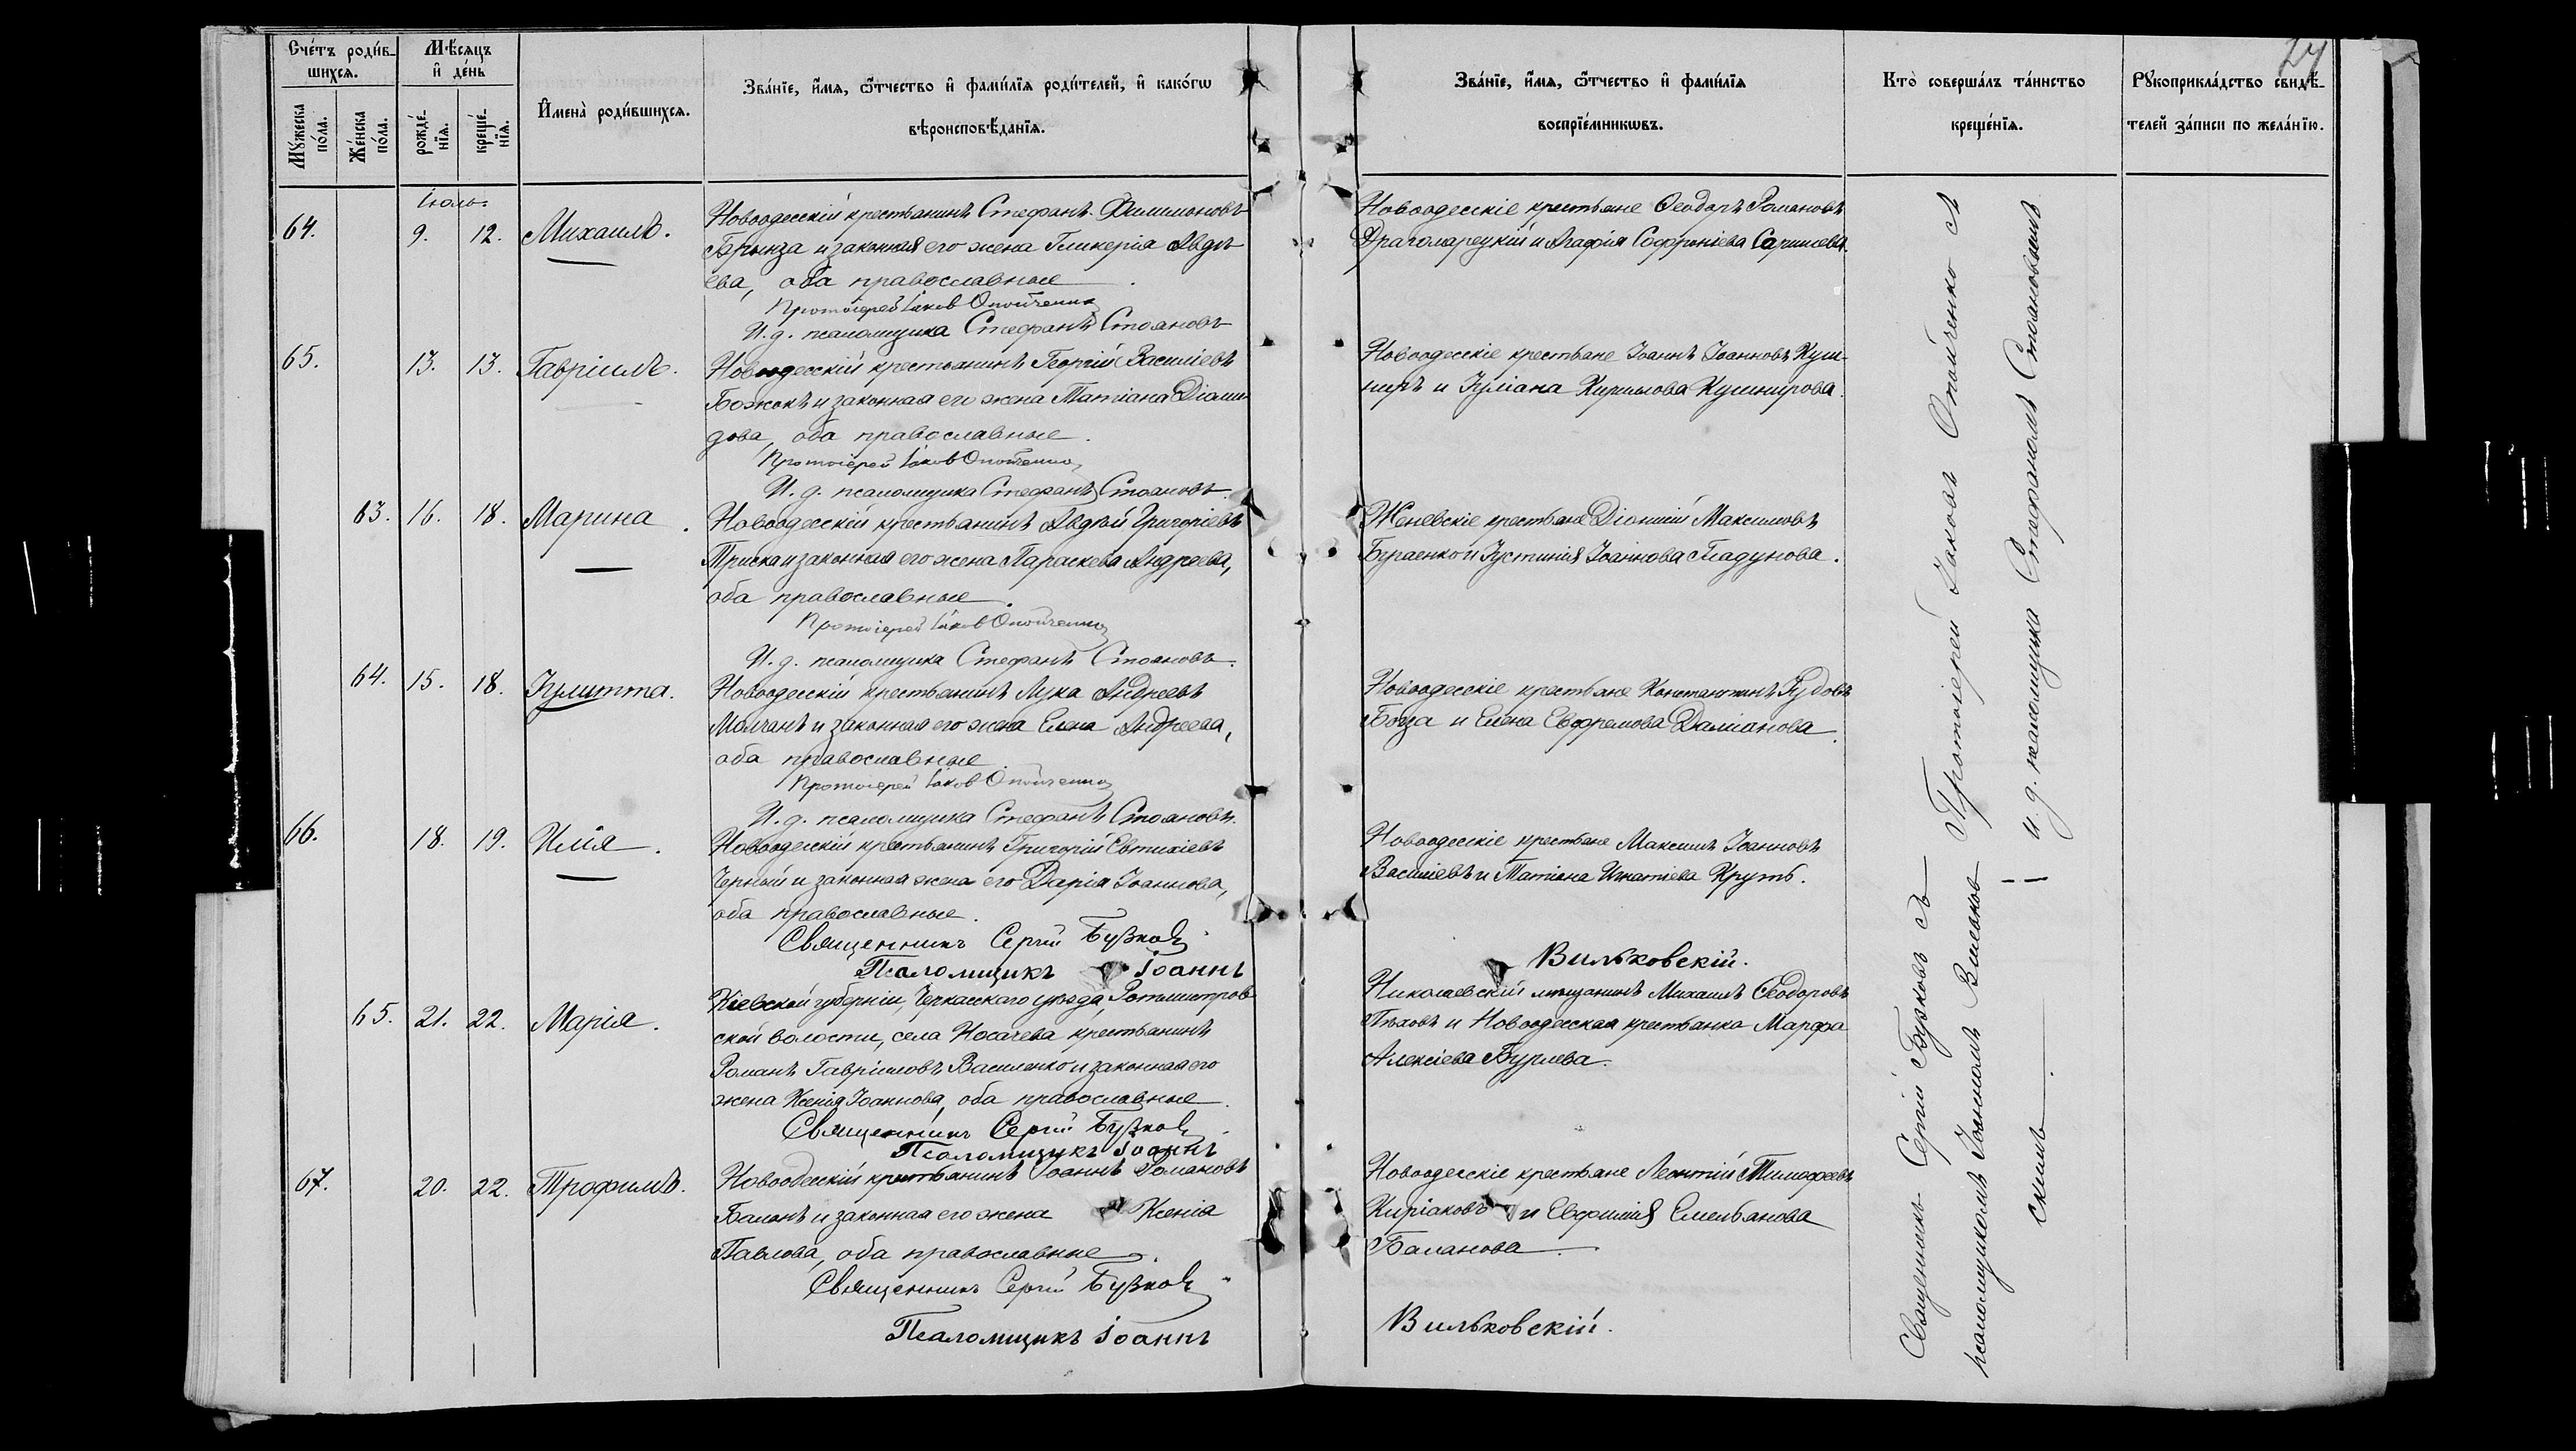 24
Счетъ родив-
шихся.
Мѣсяцъ
и день
Мужеска
пола.
Женска
пола.
рожде-
нія.
креще-
нія.
Имена родившихся.
Званіе, имя, отчество и фамилія родителей, и какогѡ
вѣроисповѣданія.
Званіе, имя, отчество и фамилія
воспріемникѡвъ.
Кто совершалъ таинство
крещенія.
Рукоприкладство свидѣ-
телей записи по желанію.
Іюль.
64. 9. 12. Михаилъ.
Новоодесскій крестьянинъ Стефанъ Филимоновъ
Брынза и законная его жена Гликерія Авдѣ
ева, оба православные
Протоіерей Іаков Опойченко
И. д. псаломщика Стефанъ Стояновъ
Новоодесскіе крестьяне Ѳеодоръ Романовъ
Драгомарецкій и Агафія Софроніева
65. 13. 13. Гавріилъ.
Новоодесскій крестьянинъ Георгій Василіевъ
Божокъ и законная его жена Татіана Діоми
дова, оба православные.
Протоіерей Іаков Опойченко
И. д. псаломщика Стефанъ Стояновъ
Новоодесскіе крестьяне Іоаннъ Іоанновъ Куш-
ниръ и Іуліана Кирилова Кушнирова.
63. 16. 18. Марина.
Новоодесскій крестьянинъ Авдѣй Григоріевъ
Триска и законная его жена Параскева Андреева,
оба православные.
Протоіерей Іаков Опойченко
И. д. псаломщика Стефанъ Стояновъ.
крестьяне Діонисій Максимовъ
Бураенко и Іустинія Іоаннова
64. 15. 18. Іулитта.
Новоодесскій крестьянинъ Лука Андреевъ
Молчанъ и законная его жена Елена Андреева,
оба православные.
Протоіерей Іаков Опойченко
И. д. псаломщика Стефанъ Стояновъ.
Новоодесскіе крестьяне Константинъ
и Елена Евфремова Даміанова.
66. 18. 19. Илія.
Новоодесскій крестьянинъ Григорій Евтихіевъ
Черный и законная жена его Дарія Іоаннова,
оба православные.
Священникъ Сергій Бузковъ
Псаломщикъ Іоаннъ
Новоодесскіе крестьяне Максимъ Іоанновъ
Василіевъ и Татіана Игнатіева Круть.
Вильковскій.
65. 21. 22. Марія.
Кіевской губерніи, Черкасскаго уѣзда, Ротмистров
ской волости, села Носачева крестьянинъ
Романъ Гавріиловъ Василенко и законная его
жена Ксенія Іоаннова, оба православные.
Священникъ Сергій Бузковъ
Псаломщикъ Іоаннъ
Николаевскій мѣщанинъ Михаилъ Ѳеодоровъ
и Новоодесская крестьянка Марфа
Алексіева
67. 20. 22. Трофимъ.
Новоодесскій крестьянинъ Іоаннъ Романовъ
Баланъ и законная его жена Ксенія
Павлова, оба православные.
Священникъ Сергій Бузковъ
Псаломщикъ Іоаннъ
Новоодесскіе крестьяне Леонтій Тимофеевъ
Киріаковъ и Евфимія Емельянова
Баланова.
Вильковскій.
Протоіерей Іаковъ Опойченко съ
и. д. псаломщика Стефаномъ Стояновымъ
Священникъ Сергій Бузковъ съ
псаломщикомъ Іоанномъ Вильков
скимъ